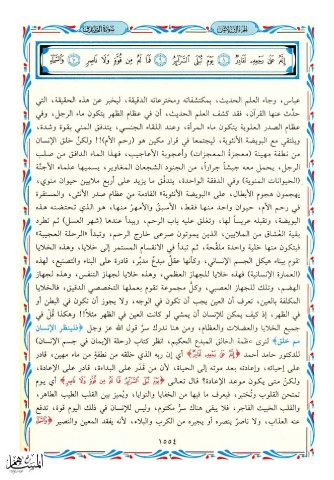 إِنَّهُ عَلَى رَجْعِهِ لَقَادِرٌ يَوْمَ تُبْلَى السَّرَائِرُ فَمَا لَهُ مِن قُوَّةٍ وَلَا نَاصِرٍ
عباس، وجاء العلم الحديث، بمكتشفاته ومخترعاته الدقيقة، ليخبر عن هذه الحقيقة، التي
حدّث عنها القرآن، فقد كشف العلم الحديث، أن في عظام الظهر يتكون ماء الرجل، وفي
عظام الصدر العلوية يتكون ماء المرأة، وعند اللقاء الجنسي، يتدفق المني بقوة وشدة،
ويلتقي مع البويضة الأنثوية، ليجتمعا في قرار مكين هو (رحم الأم)!! ولكنَّ خلق الإنسان
من نطفة مهينة (معجزةُ المعجزات) وأعجوبة الأعاجيب، فهذا الماء الدافق من صلب
الرجل، يحمل معه جيشاً جراراً، من الجنود الشجعان المغاوير، يسميها علماء الأجنَّة
(الحيوانات المنوية) وفي الدفقة الواحدة، يتدفَّق ما يزيد على أربع ملايين حيوان منوي،
يهجمون هجوم الأبطال، على «البويضة الأنثوية» القادمة من عظام صدر الأنثى، والمستقرة
في رحم الأم، حيوان واحد منها فقط، الأسبقُ والأمهرُ منها، هو الذي تحتضنه هذه
البويضة، وتقبله عريساً لها، وتغلق عليه باب الرحم، ويبدأ عندها (شهر العسل) ثم تطرد
بقية العُشاق من الملايين، الذين يموتون صرعى خارج الرحم، وتبدأ «الرحلة العجيبة»
فيتكون منها خلية واحدة ملقَّحة، ثم تبدأ في الانقسام المستمر إلى خلايا، وهذه الخلايا
تقوم ببناء هيكل الجسم الإنساني، وكأنها عقلٌ مبدعٌ مدبِّر، قادرة على البناء والتصنيع، لهذه
(العمارة الإنسانية) فهذه خلايا للجهاز العظمي، وهذه خلايا لجهاز التنفس، وهذه لجهاز
الهضم، وتلك للجهاز العصبي، وكلُّ مجموعة تقوم بعملها التخصصي الدقيق، فالخلايا
المكلفة بالعين، تعرف أن العين يجب أن تكون في الوجه، ولا يجوز أن تكون في البطن أو
في الظهر، إذ كيف يمكن للإنسان أن يمشي لو كانت العين في الظهر مثلاً؟! وهكذا قُلْ في
جميع الخلايا والعضلات والعظام، ومن هنا ندرك سرَّ قول الله عز وجل ﴿فلينظر الإنسان
مم خلق﴾ لنرى عظمة الخالق المبدع الحكيم، انظر كتاب (رحلة الإيمان في جسم الإنسان)
للدكتور حامد أحمد ﴿إنه على رجعه لقادر﴾ أي إن ربه الذي خلقه من نطفةٍ من ماء مهين، قادر
على إحيائه، وإعادته بعد موته إلى الحياة، لأن من قَدَر على البداءة، قادر على الإعادة،
ولكنْ متى يكون موعد الإعادة؟ قال تعالى ﴿يوم تبلى السرائر فما له من قوة ولا ناصر﴾ أي يوم
تمتحن القلوب وتُختبر، فيعرف ما فيها من الخفايا والنوايا، ويُميز بين القلب الطيب الطاهر،
والقلب الخبيث الفاجر، فلا يبقى هناك سرٌّ مكتوم، وليس للإنسان في ذلك اليوم قوة، تدفع
عنه العذاب، ولا ناصرٌ ينصره أو يجيره من الكرب والبلاء، لأنه يفقد المعين والنصير
١٥٥٤